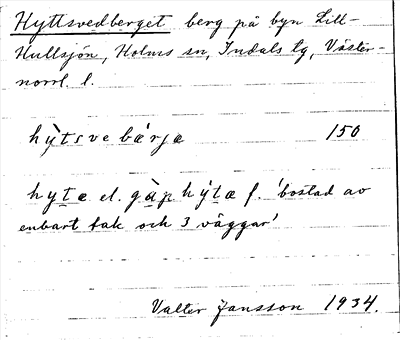 Hyttsvedberget berg på byn Lill-
Hullsjön, Holms sn, Indals tg, Väster-
norrl. l.
hy̆tsve bærjæ 150
hy̠tæ el. gàp hy̆tæ f. 'bostad av
enbart tak och 3 väggar'
Valter Jansson 1934.